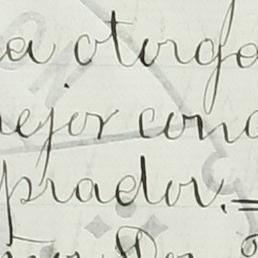 a otorga
ejor con
prador.=